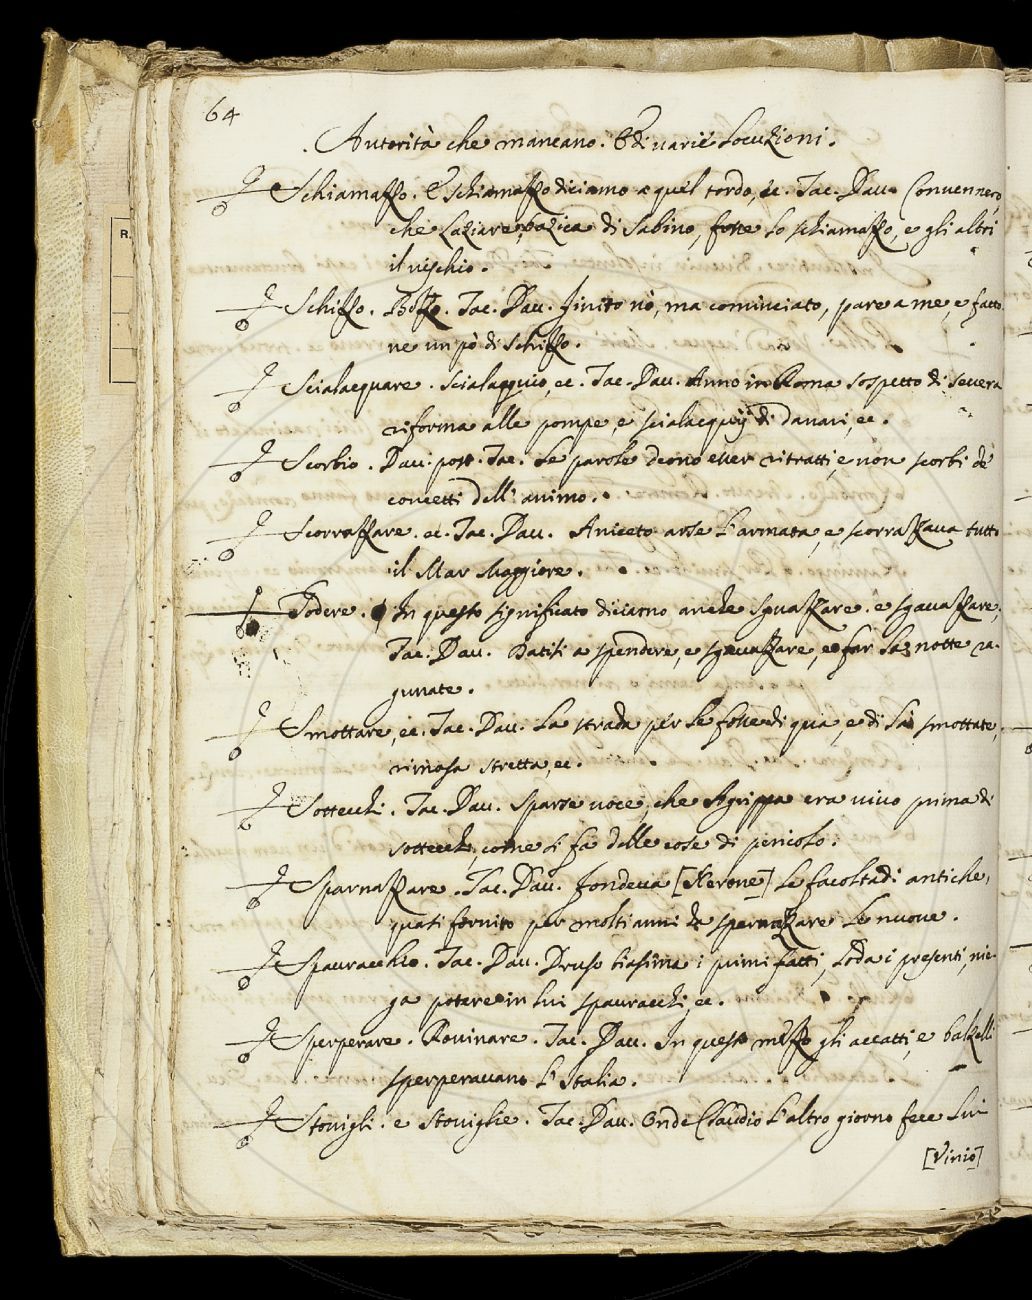 64
Autorità che mancano. E di varie Locuzioni.
Schiamazzo. E schiamazzo diciamo a quel tordo, ec. Tac. Dav. Convennero,
che Laziare, bazica di Sabino, fosse lo schiamazzo, e gli altri
il vischio.
Schizzo. Bozzo. Tac. Dav. finito nò, ma cominciato, pare a me, e fatto
ne un pò di schizzo.
Scialacquare. scialacquio, ec. Tac. Dav. Anno in Roma sospetto di severa
riforma alle pompe, e scialacquij di danari, ec.
Scorbio. Dav. post. Tac. Le parole deono esser ritratti, e non scorbi de
concetti dell'animo.
Scorrazzare. ec. Tac. Dav. Aniceto arse l'armata, e scorrazzava tutto
il Mar Maggiore.
Godere. In questo significato diciamo anche sguazzare. e sgavazzare,
Tac. Dav. Datisi a spendere, e sgavazzare, e far la notte ra-
gunate.
Smottare, ec. Tac. Dav. La strada per le fosse di qua, e di là smottate,
rimasa stretta, ec.
Sottecchi. Tac. Dav. Sparse voce, che Agrippa era vivo prima di
sottecchi, come si fa delle cose di pericolo.
Sparnazzare. Tac. Dav. fondeva [Nerone] le facoltadi antiche,
quasi fornito per molti anni da sparnazzare le nuove.
Spauracchio. Tac. Dav. Druso biasima i primi fatti, loda i presenti, nie-
ga potere in lui spauracchi, ec.
Sperperare. Rovinare. Tac. Dav. In questo mezzo gli accatti, e balzelli
sperperavano l'Italia.
Stovigli. e Stoviglie. Tac. Dav. Onde Claudio l'altro giorno fece lui
[Vinio]
R.